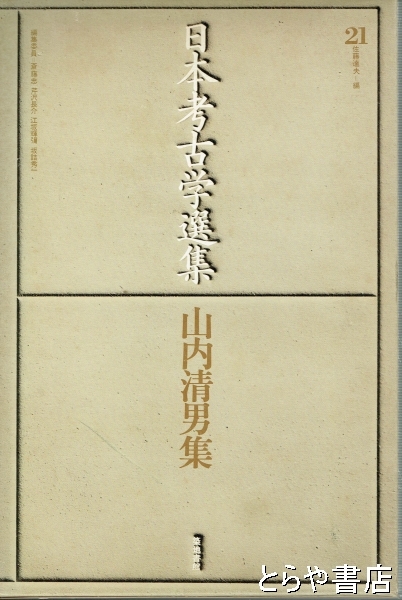 21
佐藤達夫・編
日本考古学選集
編集委員 斎藤忠 芹沢長介 江坂輝彌 坂詰秀一
山内清男集
築地書館
とらや書店